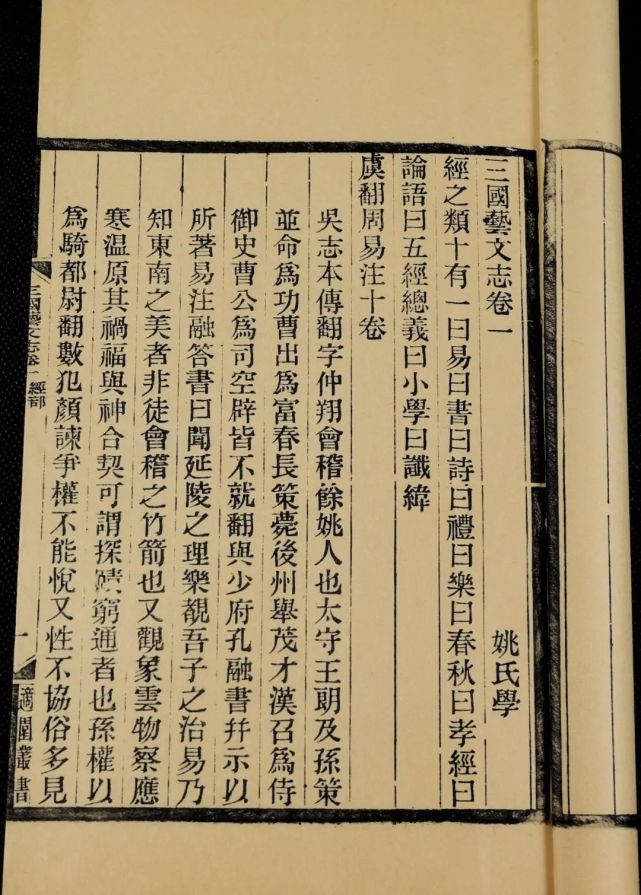 三國藝文志卷一 姚氏學
經之類十有一曰易曰書曰詩曰禮曰樂曰春秋曰孝經曰
論語曰五經總義曰小學曰讖緯
虞翻周易注十卷
吳志本傳翻字仲翔會稽餘姚人也太守王朗及孫策
並命爲功曹出爲富春長策薨後州舉茂才漢召爲侍
御史曹公爲司空辟皆不就翻與少府孔融書幷示以
所著易注融答書曰聞延陵之理樂覩吾子之治易乃
知東南之美者非徒會稽之竹箭也又觀象雲物察應
寒温原其禍福與神合契可謂探賾窮通者也孫權以
爲騎都尉翻數犯顏諫爭權不能悅又性不協俗多見
三國藝文志卷一 經部 一 適園叢書